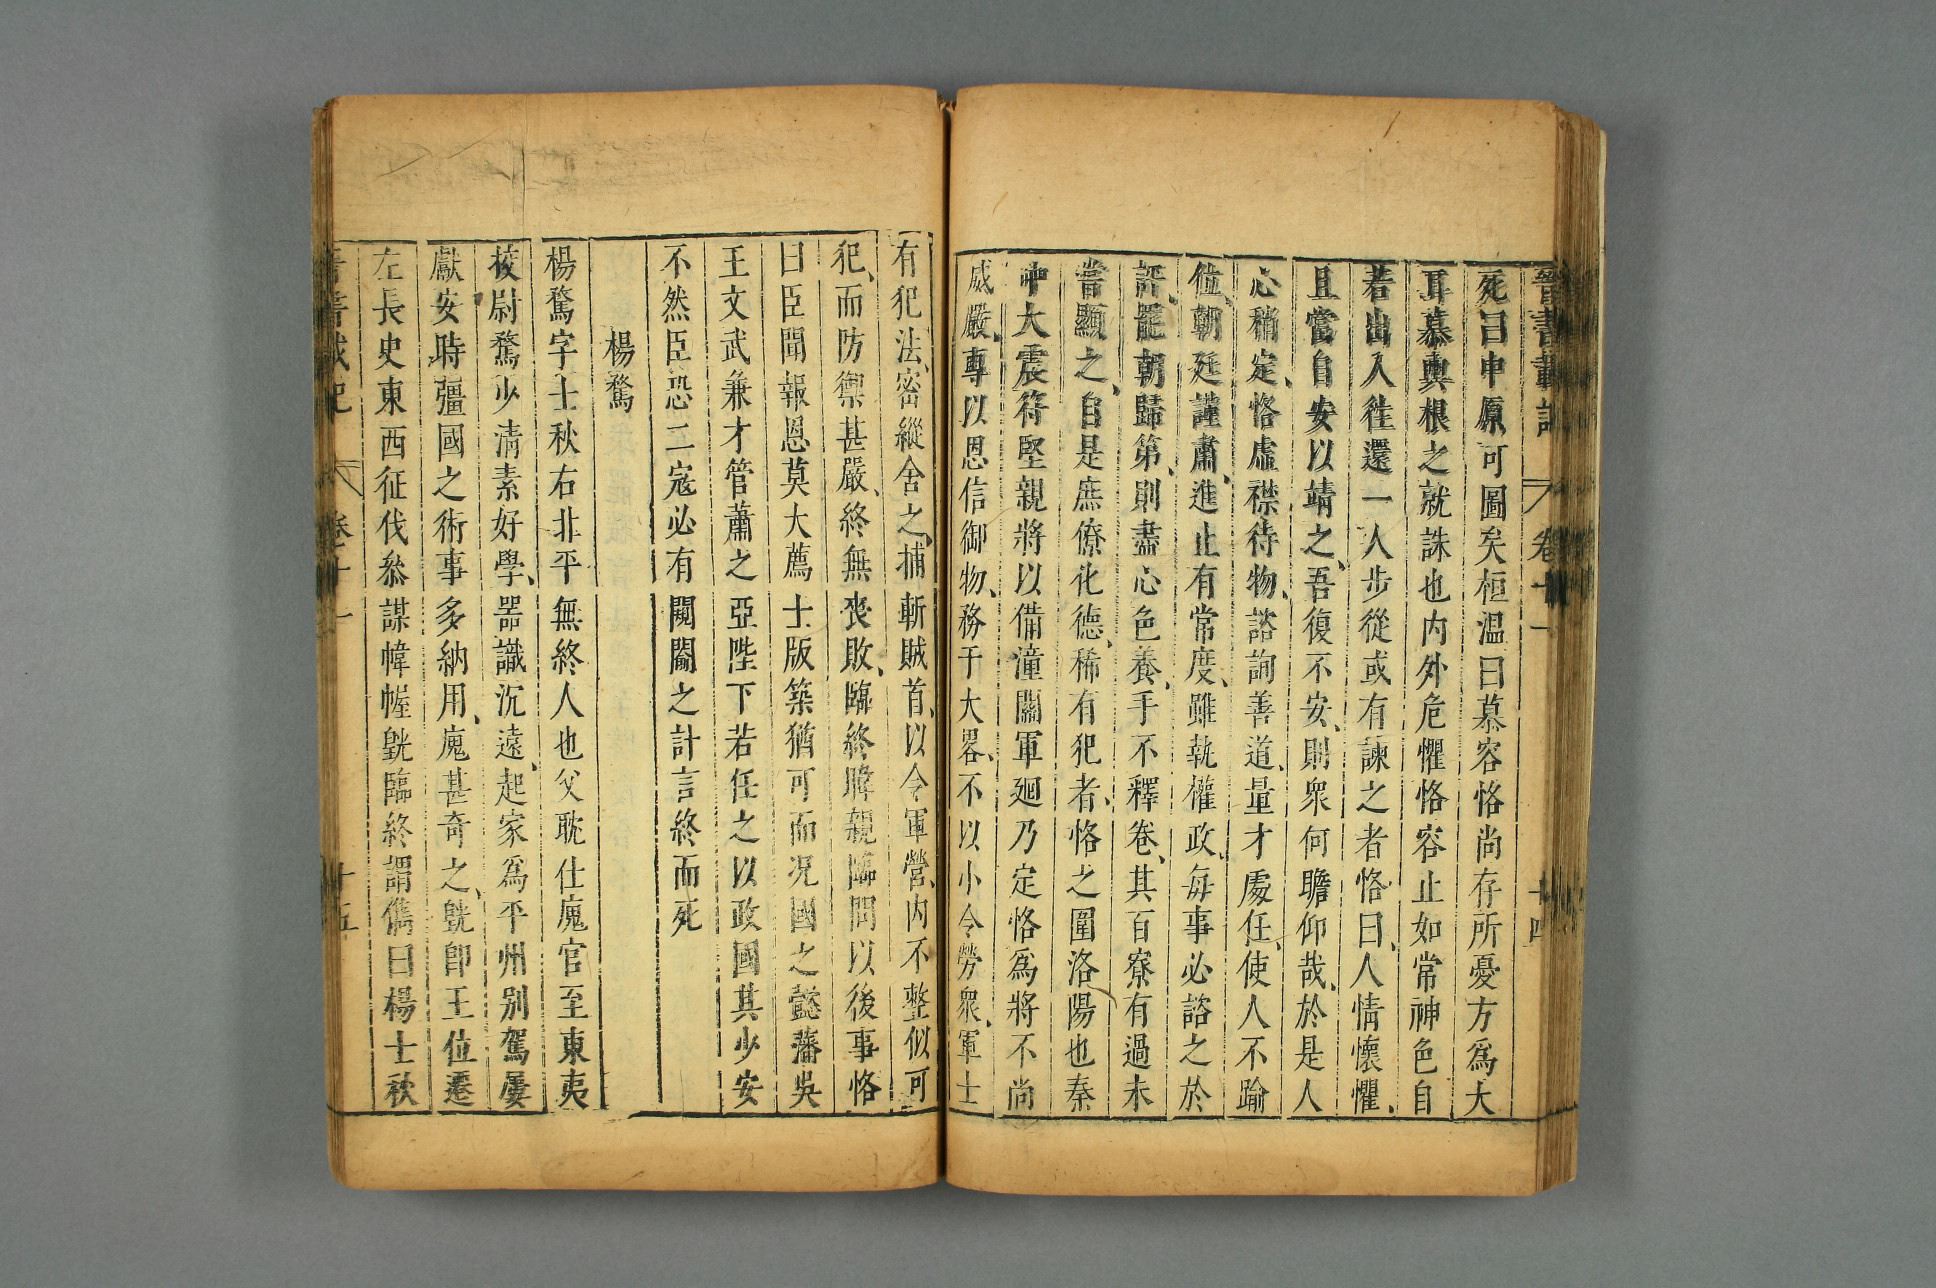 晉書載記 卷十一 十四
死曰中原可圖矣桓温曰慕容恪尚存所憂方爲大
耳慕輿根之就誅也内外危懼恪容止如常神色自
若出入往還一人步從或有諫之者恪曰人情懷懼
且當自安以靖之吾復不安則衆何瞻仰哉於是人
心稍定恪虛襟待物諮詢善道量才處任使人不踰
位朝廷謹肅進止有常度雖執權政毎事必諮之於
評罷朝歸第則盡心色養手不釋卷其百寮有過未
嘗顯之自是庶僚化德稀有犯者恪之圍洛陽也秦
中大震苻堅親將以備潼關軍廻乃定恪爲將不尚
威嚴專以恩信御物務于大畧不以小令勞衆軍士
有犯法密縱舍之捕斬賊首以令軍營内不整似可
犯而防禦甚嚴終無喪敗臨終暐親臨問以後事恪
曰臣聞報恩莫大薦士版築猶可而况國之懿藩吳
王文武兼才管蕭之亞陛下若任之以政國其少安
不然臣恐二寇必有闚䦧之計言終而死
楊騖
楊騖字士秋右北平無終人也父耽仕廆官至東夷
校尉騖少清素好學器識沉遠起家爲平州别駕屢
獻安時彊國之術事多納用廆甚奇之皝卽王位遷
左長史東西征伐叅謀幃幄皝臨終謂儁曰楊士秋
晉書載記 卷十一 十五